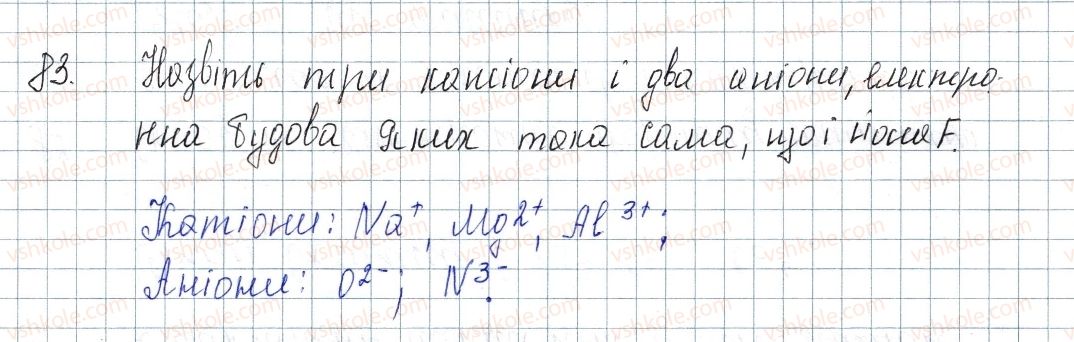 83. Назвіть три катіони і два аніони, електро-
нна будова яких така сама, що і йона F.
Катіони: Na⁺, Mg²⁺, Al³⁺;
Аніони: O²⁻; N³⁻.